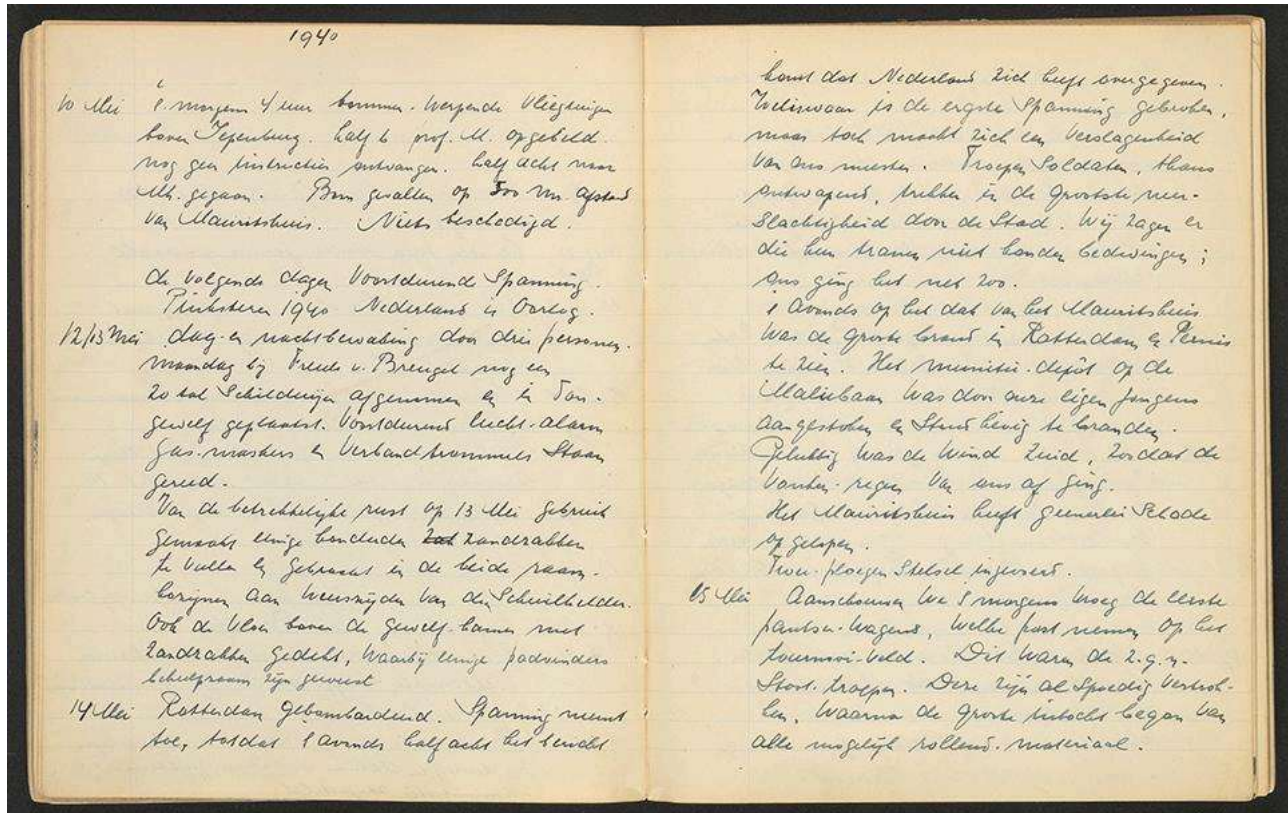 1940
10 Mei 's morgens 4 uur bommen-werpende vliegtuigen
boven Iepenburg. half 6 prof. M. opgebeld.
nog geen instructies ontvangen. half acht naar
Mh. gegaan. Bom gevallen op 500 m. afstand
van Mauritshuis. Niets beschadigd.
de volgende dagen voortdurend Spanning.
Pinksteren 1940 Nederland in Oorlog.
12/13 Mei dag- en nachtbewaking door drie personen.
maandag bij v. Brengel nog een
20 tal Schilderijen afgenomen en in
gewelf geplaatst. Voortdurend lucht-alarm
gas-maskers en Verbandtrommels Staan
gereed.
Van de betrekkelijke rust op 13 Mei gebruik
gemaakt eenige honderden zandzakken
te vullen en gebracht in de beide raam-
kozijnen aan weerszijden van de Schuilkelder.
Ook de vloer boven de gewelf-kamer met
Zandzakken gedekt, waarbij eenige padvinders
behulpzaam zijn geweest
14 Mei Rotterdam gebombardeerd. Spanning neemt
toe, totdat 's avonds half acht het bericht
komt dat Nederland zich heeft overgegeven.
Weliswaar is de ergste Spanning gebroken,
maar toch maakt zich een Verslagenheid
van ons meester. Troepen Soldaten, thans
ontwapend, trekken in de grootste neer-
slachtigheid door de Stad. Wij zagen er
die hun tranen niet konden bedwingen;
ons ging het net zoo.
's Avonds op het dak van het Mauritshuis
was de groote brand in Rotterdam en Pernis
te zien. Het munitie-depôt op de
Maliebaan was door onze eigen jongens
aangestoken en Stond hevig te branden.
Gelukkig was de wind Zuid, zoodat de
vonken-regen van ons af ging.
Het Mauritshuis heeft geenerlei Schade
opgelopen.
Twee-ploegen Stelsel ingevoerd.
15 Mei Aanschouwen we 's morgens vroeg de eerste
pantser-wagens, welke post nemen op het
tournooi-veld. Dit waren de z.g.n.
Stoot-troepen. Deze zijn al Spoedig vertrok-
ken, waarna de groote intocht began van
alle mogelijk rollend-materiaal.